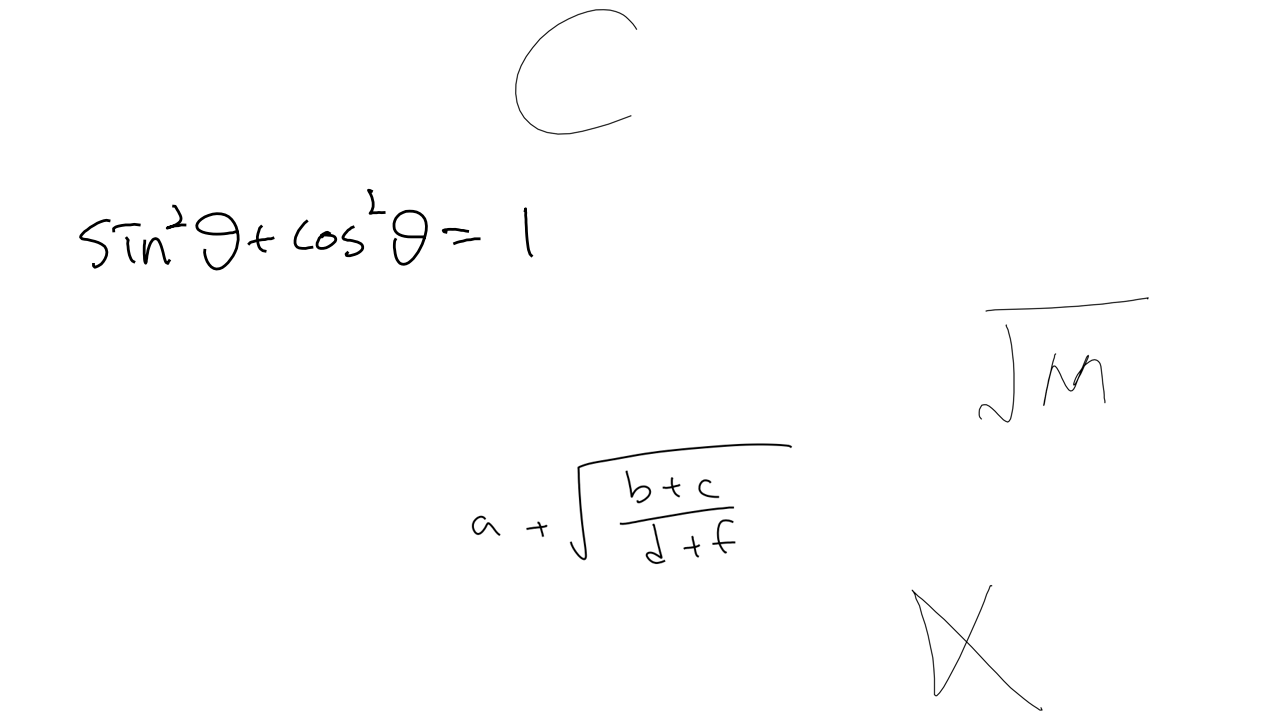 C
sin²θ + cos²θ = 1
√M
a + √((b + c)/(d + f))